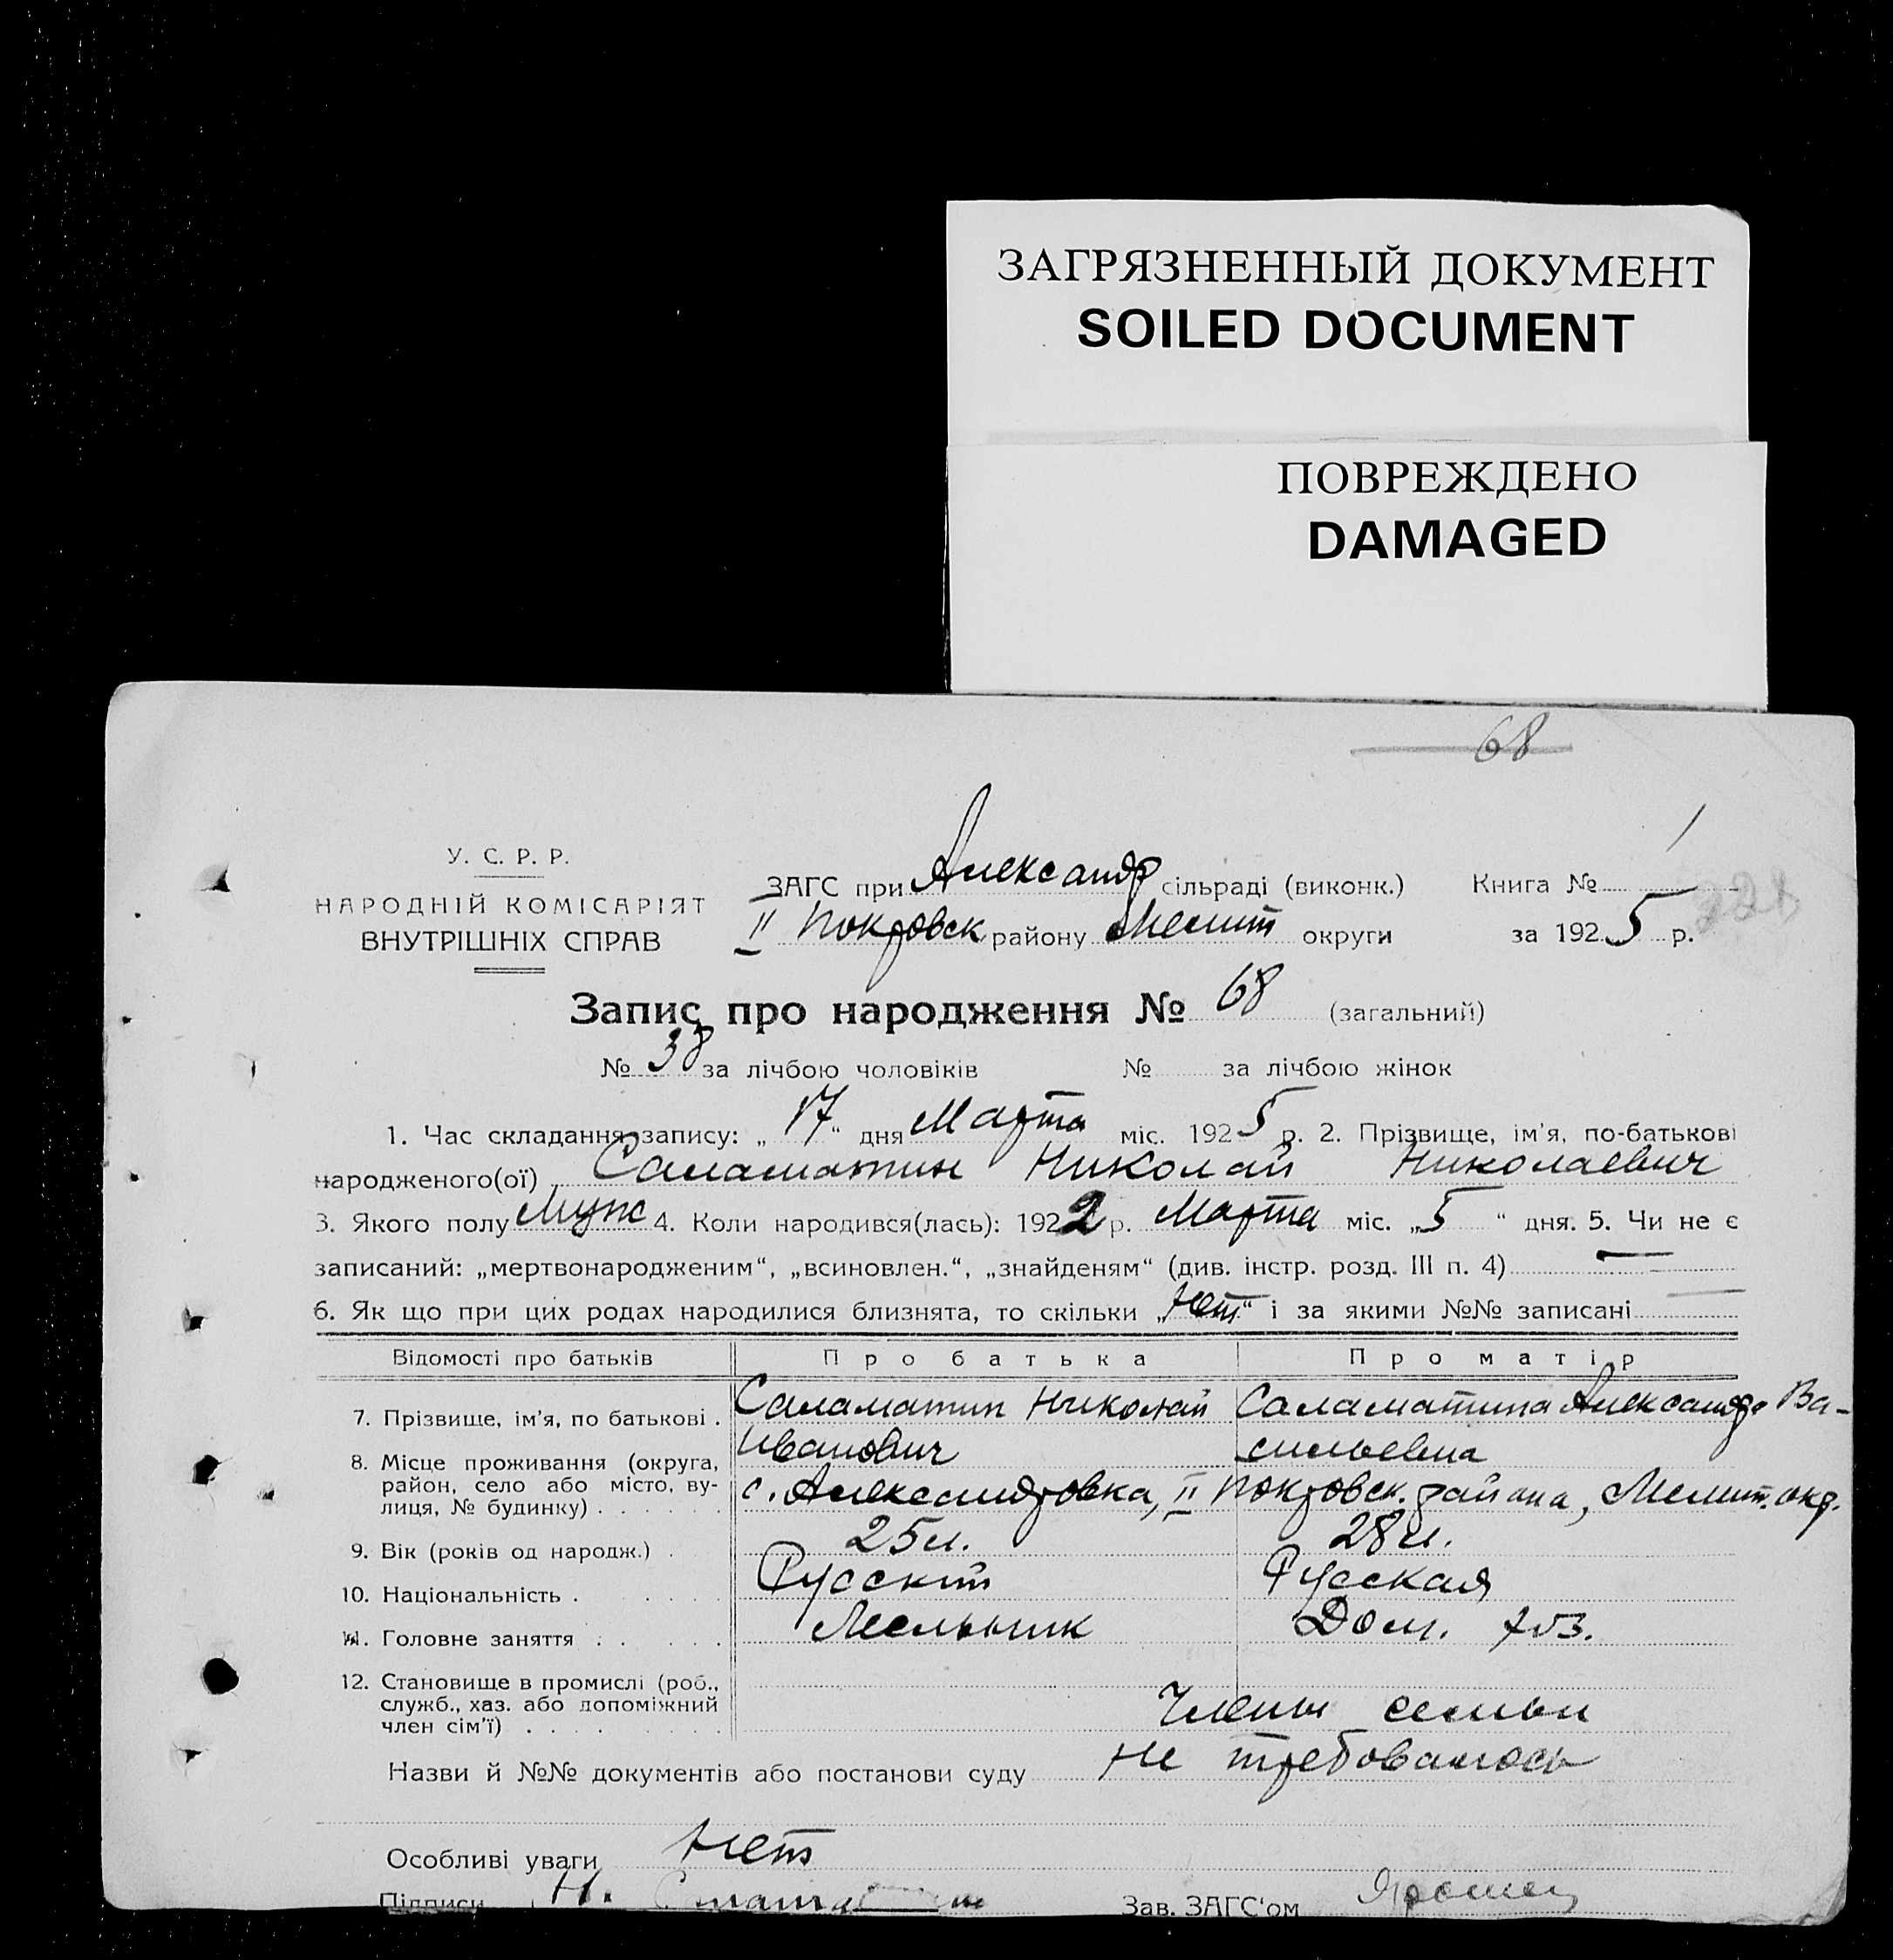 ЗАГРЯЗНЕННЫЙ ДОКУМЕНТ
SOILED DOCUMENT
ПОВРЕЖДЕНО
DAMAGED
68
У. С. Р. Р.
НАРОДНІЙ КОМІСАРІЯТ
ВНУТРІШНІХ СПРАВ
ЗАГС при Александр сільраді (виконк.) Книга № 1
II Покровск району Мелит округи за 1925 р.
Запис про народження № 68 (загальний)
№ 38 за лічбою чоловіків № за лічбою жінок
1. Час складання запису: „17“ дня Марта міс. 1925 р. 2. Прізвище, ім’я, по-батькові
народженого(ої) Саламатин Николай Николаевич
3. Якого полу Муж 4. Коли народився(лась): 1922 р. Марта міс. „5“ дня. 5. Чи не є
записаний: „мертвонародженим“, „всиновлен.“, „знайденям“ (див. інстр. розд. III п. 4) —
6. Як що при цих родах народилися близнята, то скільки „Нет“ і за якими №№ записані —
Відомості про батьків Про батька Про матір
7. Прізвище, ім’я, по батькові . Саламатин Николай Саламатина Александра Ва-
Иванович сильевна
8. Місце проживання (округа, район, село або місто, ву-
лиця, № будинку) . . . . . . с. Александровка, II Покровск. района, Мелит. окр.
9. Вік (років од народж.) . 25 л. 28 л.
10. Національність . . . . . Русский Русская
11. Головне заняття . . . . . Мельник Дом. хоз.
12. Становище в промислі (роб.,
служб., хаз. або допоміжний
член сім’ї) . . . . Члены семьи
Назви й №№ документів або постанови суду Не требовалось
Особливі уваги Нет
Підписи Н.
Зав. ЗАГС‘ом